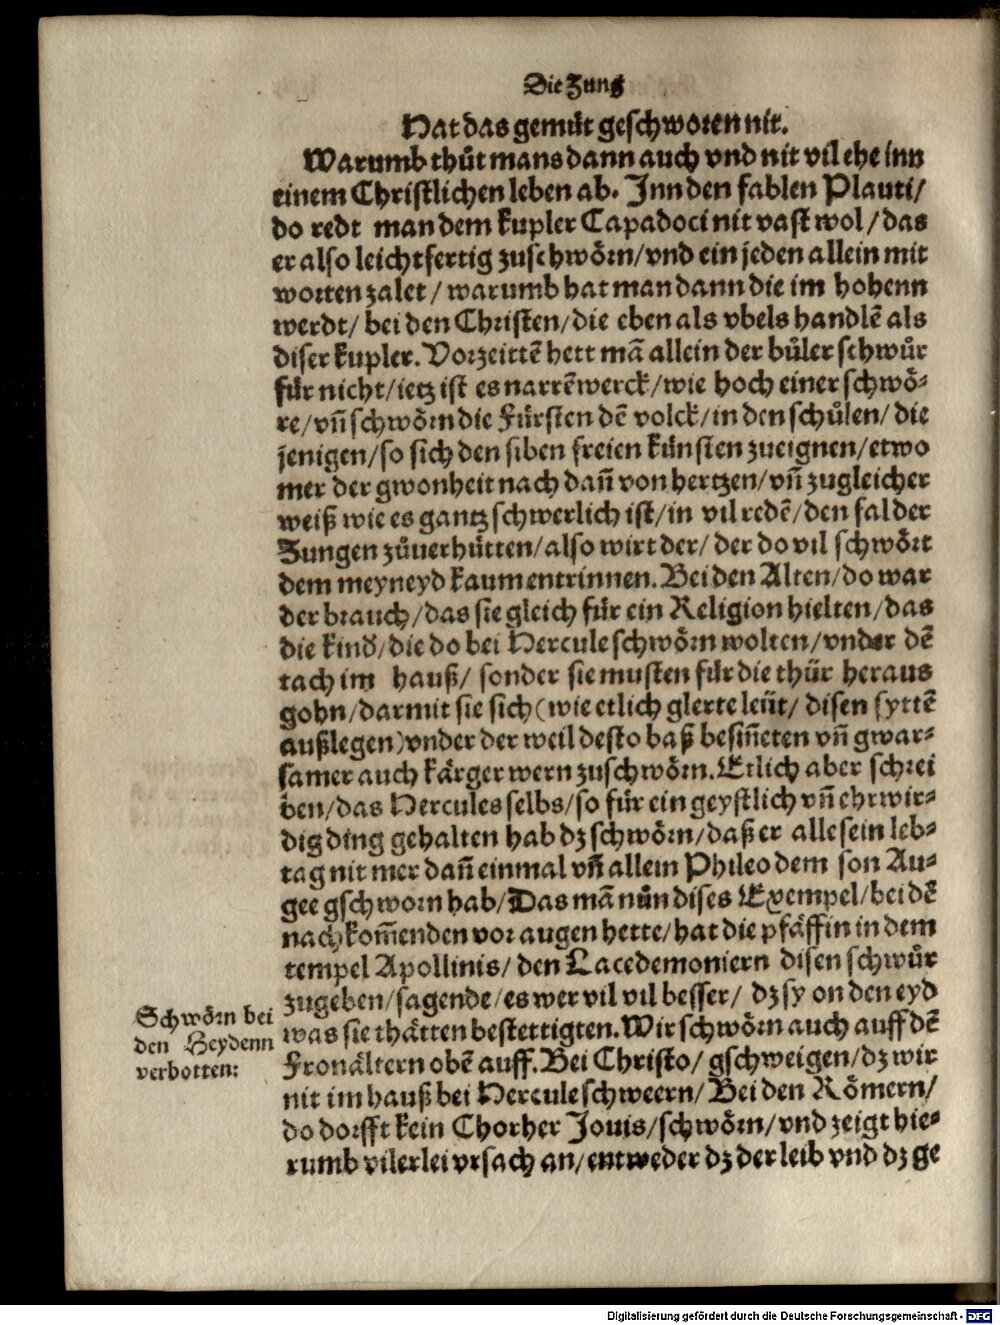 Die Zung
Hat das gemüt geschworen nit.
Warumb thůt mans dann auch vnd nit vil ehe inn
einem Christlichen leben ab. Jnn den fablen Plauti/
do redt man dem kupler Capadoci nit vast wol/das
er also leichtfertig zuschwörn/vnd ein jeden allein mit
worten zalet/ warumb hat man dann die im hohenn
werdt/ bei den Christen/die eben als vbels handlē als
diser kupler. Vorzeittē hett mā allein der bůler schwůr
für nicht/ietz ist es narrēwerck/wie hoch einer schwö⸗
re/vñ schwörn die Fürsten dē volck/in den schůlen/ die
jenigen/so sich den siben freien künsten zueignen/etwo
mer der gwonheit nach dañ von hertzen/vñ zugleicher
weiß wie es gantz schwerlich ist/in vil redē/den fal der
Zungen zůuerhütten/also wirt der/ der do vil schwört
dem meyneyd kaum entrinnen. Bei den Alten/do war
der brauch/das sie gleich für ein Religion hielten/das
die kind/die do bei Hercule schwörn wolten/vnder dē
tach im hauß/ sonder sie musten für die thür heraus
gohn/darmit sie sich(wie etlich glerte leüt/ disen syttē
außlegen)vnder der weil desto baß besiñeten vñ gwar⸗
samer auch kärger wern zuschwörn. Etlich aber schrei
ben/das Hercules selbs/so für ein geystlich vñ ehrwir⸗
dig ding gehalten hab dz schwörn/daß er alle sein leb⸗
tag nit mer dañ einmal vñ allein Phileo dem son Au⸗
gee gschworn hab/Das mā nůn dises Exempel/bei dē
nachkom̃enden vor augen hette/hat die pfäffin in dem
tempel Apollinis/ den Lacedemoniern disen schwůr
zugeben/sagende/es wer vil vil besser/ dz sy on den eyd
was sie thätten bestettigten. Wir schwörn auch auff dē
Fronältern obē auff. Bei Christo/ gschweigen/dz wir
nit im hauß bei Hercule schweern/ Bei den Römern/
do dorfft kein Chorher Jouis/schwörn/vnd zeigt hie⸗
rumb vilerlei vrsach an/entweder dz der leib vnd dz ge
Schwörn bei
den Heydenn
verbotten:
Digitalisierung gefördert durch die Deutsche Forschungsgemeinschaft - DFG